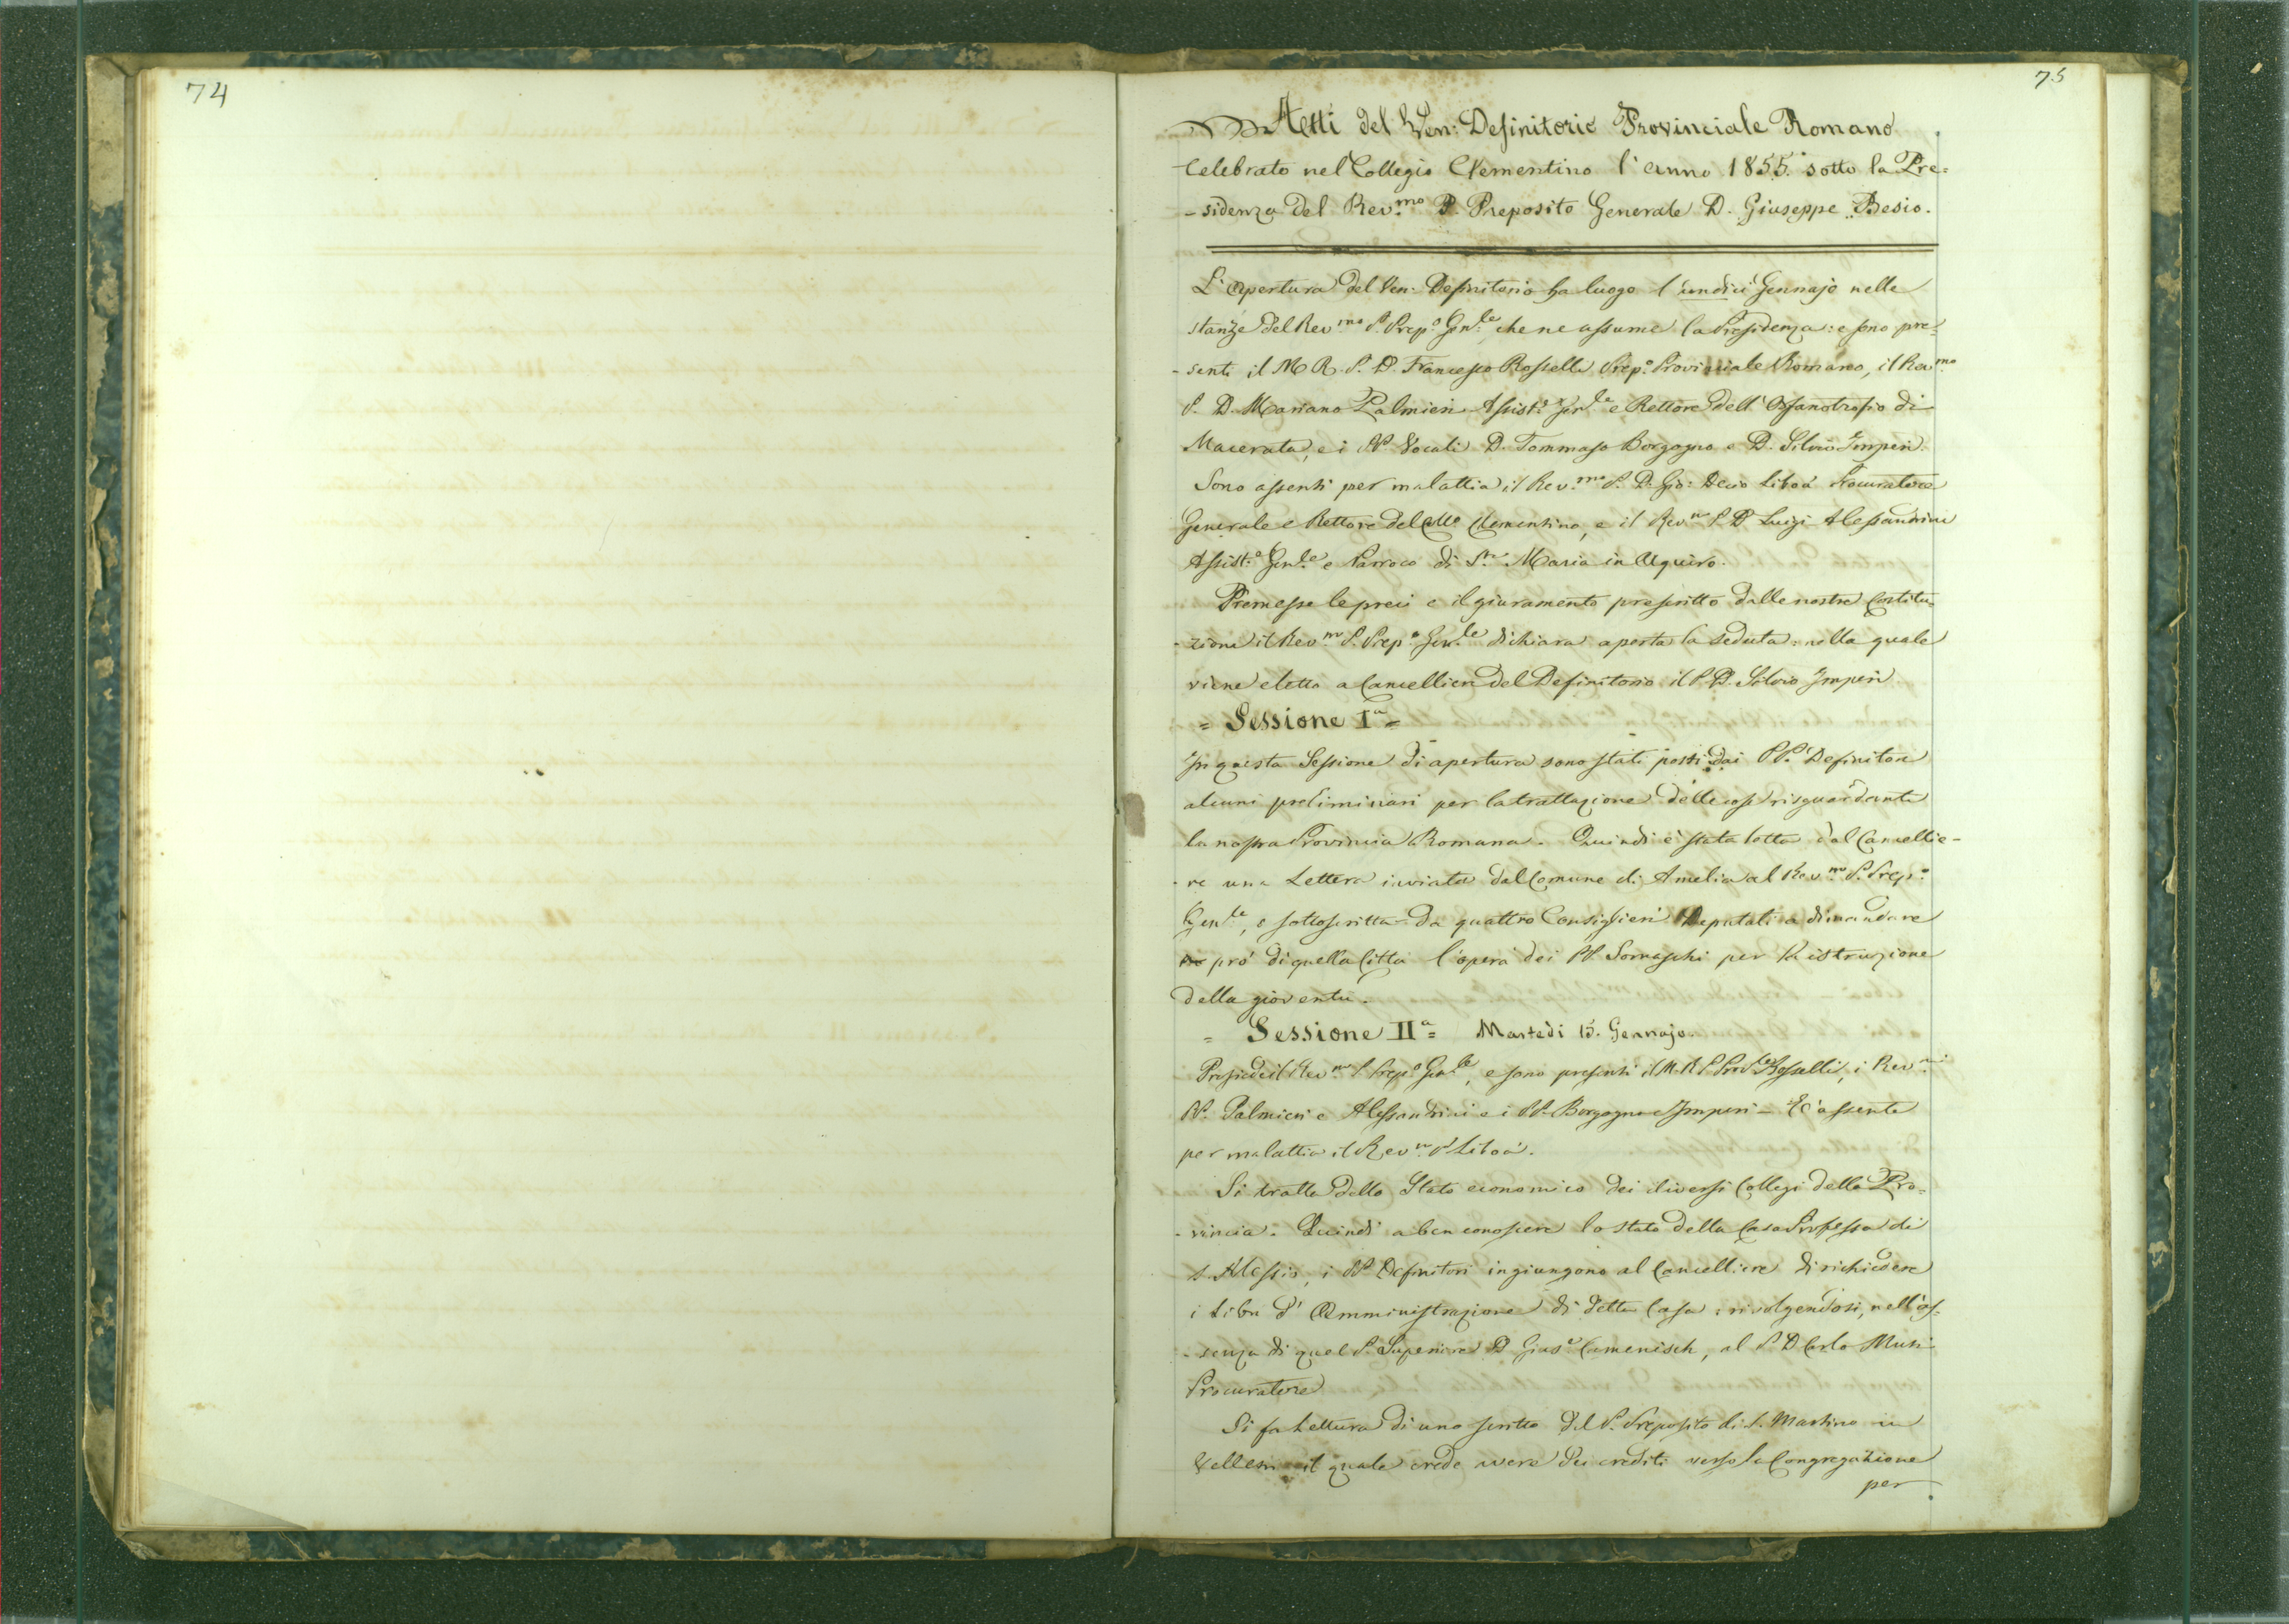 74
75
Atti del Ven: Definitorio Provinciale Romano
Celebrato nel Collegio Clementino l'anno 1855. sotto la Pre=
-sidenza del Rev.mo P. Preposito Generale D. Giuseppe Besio.
L'Apertura del Ven. Definitorio ha luogo l'undici Gennajo nelle
stanze del Rev.mo P. Prep.o Gen.le, che ne assume la Presidenza: e sono pre=
-senti il M R. P. D. Francesco Rosselli Prep.o Provinciale Romano, il Rev.mo
P. D. Mariano Palmieri Assist.e Gen.le e Rettore dell'Orfanotrofio di
Macerata, e i PP. Vocali D. Tommaso Borgogno e D. Silvio Imperi.
Sono assenti per malattia il Rev.mo P. D. Gio: Decio Liboà Procuratore
Generale e Rettore del Coll.o Clementino, e il Rev.mo P. D. Luigi Alessandrini
Assist.e Gen.le e Parroco di S.ta Maria in Aquiro.
Premesse le preci e il giuramento prescritto dalle nostre Costitu=
-zioni il Rev.mo P. Prep.o Gen.le dichiara aperta la seduta: nella quale
viene eletto a Cancelliere del Definitorio il P. D. Silvio Imperi
= Sessione I.a =
In questa Sessione di apertura sono stati posti dai PP. Definitori
alcuni preliminari per la trattazione delle cose risguardanti
la nostra Provincia Romana. Quindi è stata letta dal Cancellie-
-re una Lettera inviata dal Comune di Amelia al Rev.mo P. Prep.o
Gen.le, e sottoscritta da quattro Consiglieri Deputati a dimandare
pro' di quella Città l'opera dei PP. Somaschi per la istruzione
della gioventù.
= Sessione II.a = Martedì 15. Gennajo.
Presiede il Rev.mo P. Prep.o Gen.le, e sono presenti il M. R. P. Prov.le Rosselli, i Rev.mi
PP. Palmieri e Alessandrini e i PP. Borgogno e Imperi - È assente
per malattia il Rev.mo P. Liboà.
Si tratta dello Stato economico dei diversi Collegi della Pro=
-vincia. Quindi a ben conoscere lo stato della Casa Professa di
S. Alessio, i PP. Definitori ingiungono al Cancelliere di richiedere
i Libri d'Amministrazione di detta Casa: rivolgendosi, nell'as-
-senza di quel P. Superiore D. Gius.e Camenisch, al P. D. Carlo Muti
Procuratore
Si fa Lettura di uno scritto del P. Preposito di S. Martino in
Velletri il quale crede avere dei crediti verso la Congregazione
per